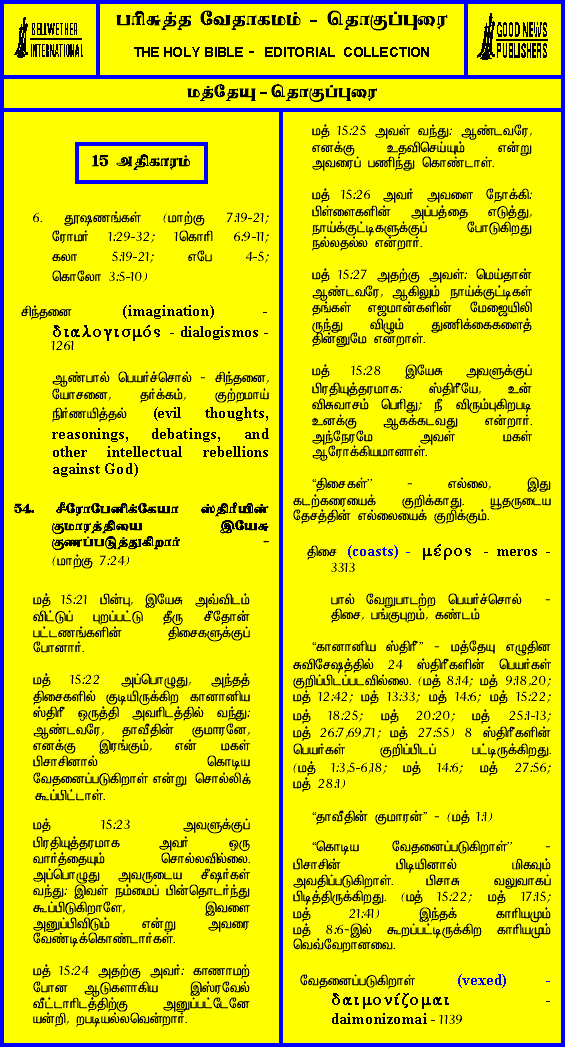 BELLWETHER
INTERNATIONAL
பரிசுத்த வேதாகமம் - தொகுப்புரை
THE HOLY BIBLE - EDITORIAL COLLECTION
GOOD NEWS
PUBLISHERS
மத்தேயு - தொகுப்புரை
15 அதிகாரம்
6. தூஷணங்கள் (மாற்கு 7:19-21;
ரோமர் 1:29-32; 1கொரி 6:9-11;
கலா 5:19-21; எபே 4-5;
கொலோ 3:5-10)
சிந்தனை (imagination) -
διαλογισμός - dialogismos -
1261
ஆண்பால் பெயர்ச்சொல் - சிந்தனை,
யோசனை, தர்க்கம், குற்றமாய்
நிர்ணயித்தல் (evil thoughts,
reasonings, debatings, and
other intellectual rebellions
against God)
54. சீரோபேனிக்கேயா ஸ்திரீயின்
குமாரத்தியை இயேசு
குணப்படுத்துகிறார் -
(மாற்கு 7:24)
மத் 15:21 பின்பு, இயேசு அவ்விடம்
விட்டுப் புறப்பட்டு தீரு சீதோன்
பட்டணங்களின் திசைகளுக்குப்
போனார்.
மத் 15:22 அப்பொழுது, அந்தத்
திசைகளில் குடியிருக்கிற கானானிய
ஸ்திரீ ஒருத்தி அவரிடத்தில் வந்து:
ஆண்டவரே, தாவீதின் குமாரனே,
எனக்கு இரங்கும், என் மகள்
பிசாசினால் கொடிய
வேதனைப்படுகிறாள் என்று சொல்லிக்
கூப்பிட்டாள்.
மத் 15:23 அவளுக்குப்
பிரதியுத்தரமாக அவர் ஒரு
வார்த்தையும் சொல்லவில்லை.
அப்பொழுது அவருடைய சீஷர்கள்
வந்து: இவள் நம்மைப் பின்தொடர்ந்து
கூப்பிடுகிறாளே, இவளை
அனுப்பிவிடும் என்று அவரை
வேண்டிக்கொண்டார்கள்.
மத் 15:24 அதற்கு அவர்: காணாமற்
போன ஆடுகளாகிய இஸ்ரவேல்
வீட்டாரிடத்திற்கு அனுப்பட்டேனே
யன்றி, றபடியல்லவென்றார்.
மத் 15:25 அவள் வந்து: ஆண்டவரே,
எனக்கு உதவிசெய்யும் என்று
அவரைப் பணிந்து கொண்டாள்.
மத் 15:26 அவர் அவளை நோக்கி:
பிள்ளைகளின் அப்பத்தை எடுத்து,
நாய்க்குட்டிகளுக்குப் போடுகிறது
நல்லதல்ல என்றார்.
மத் 15:27 அதற்கு அவள்: மெய்தான்
ஆண்டவரே, ஆகிலும் நாய்க்குட்டிகள்
தங்கள் எஜமான்களின் மேஜையிலி
ருந்து விழும் துணிக்கைகளைத்
தின்னுமே என்றாள்.
மத் 15:28 இயேசு அவளுக்குப்
பிரதியுத்தரமாக: ஸ்திரீயே, உன்
விசுவாசம் பெரிது; நீ விரும்புகிறபடி
உனக்கு ஆகக்கடவது என்றார்.
அந்நேரமே அவள் மகள்
ஆரோக்கியமானாள்.
“திசைகள்” - எல்லை, இது
கடற்கரையைக் குறிக்காது. யூதருடைய
தேசத்தின் எல்லையைக் குறிக்கும்.
திசை (coasts) - μέρος - meros -
3313
பால் வேறுபாடற்ற பெயர்ச்சொல் -
திசை, பங்குபுறம், கண்டம்
“கானானிய ஸ்திரீ” - மத்தேயு எழுதின
சுவிசேஷத்தில் 24 ஸ்திரீகளின் பெயர்கள்
குறிப்பிடப்படவில்லை. (மத் 8:14; மத் 9:18,20;
மத் 12:42; மத் 13:33; மத் 14:6; மத் 15:22;
மத் 18:25; மத் 20:20; மத் 25:1-13;
மத் 26:7,69,71; மத் 27:55) 8 ஸ்திரீகளின்
பெயர்கள் குறிப்பிடப் பட்டிருக்கிறது.
(மத் 1:3,5-6,18; மத் 14:6; மத் 27:56;
மத் 28:1)
“தாவீதின் குமாரன்” - (மத் 1:1)
“கொடிய வேதனைப்படுகிறாள்” -
பிசாசின் பிடியினால் மிகவும்
அவதிப்படுகிறாள். பிசாசு வலுவாகப்
பிடித்திருக்கிறது. (மத் 15:22; மத் 17:15;
மத் 21:41) இந்தக் காரியமும்
மத் 8:6-இல் கூறப்பட்டிருக்கிற காரியமும்
வெவ்வேறானவை.
வேதனைப்படுகிறாள் (vexed) -
δαιμονίζομαι -
daimonizomai - 1139